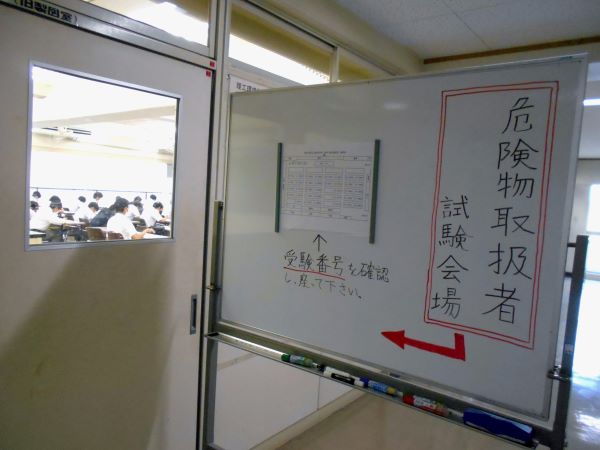 (旧製図室)
危険物取扱者
試験会場
↑
受験番号を確認
し、座って下さい。